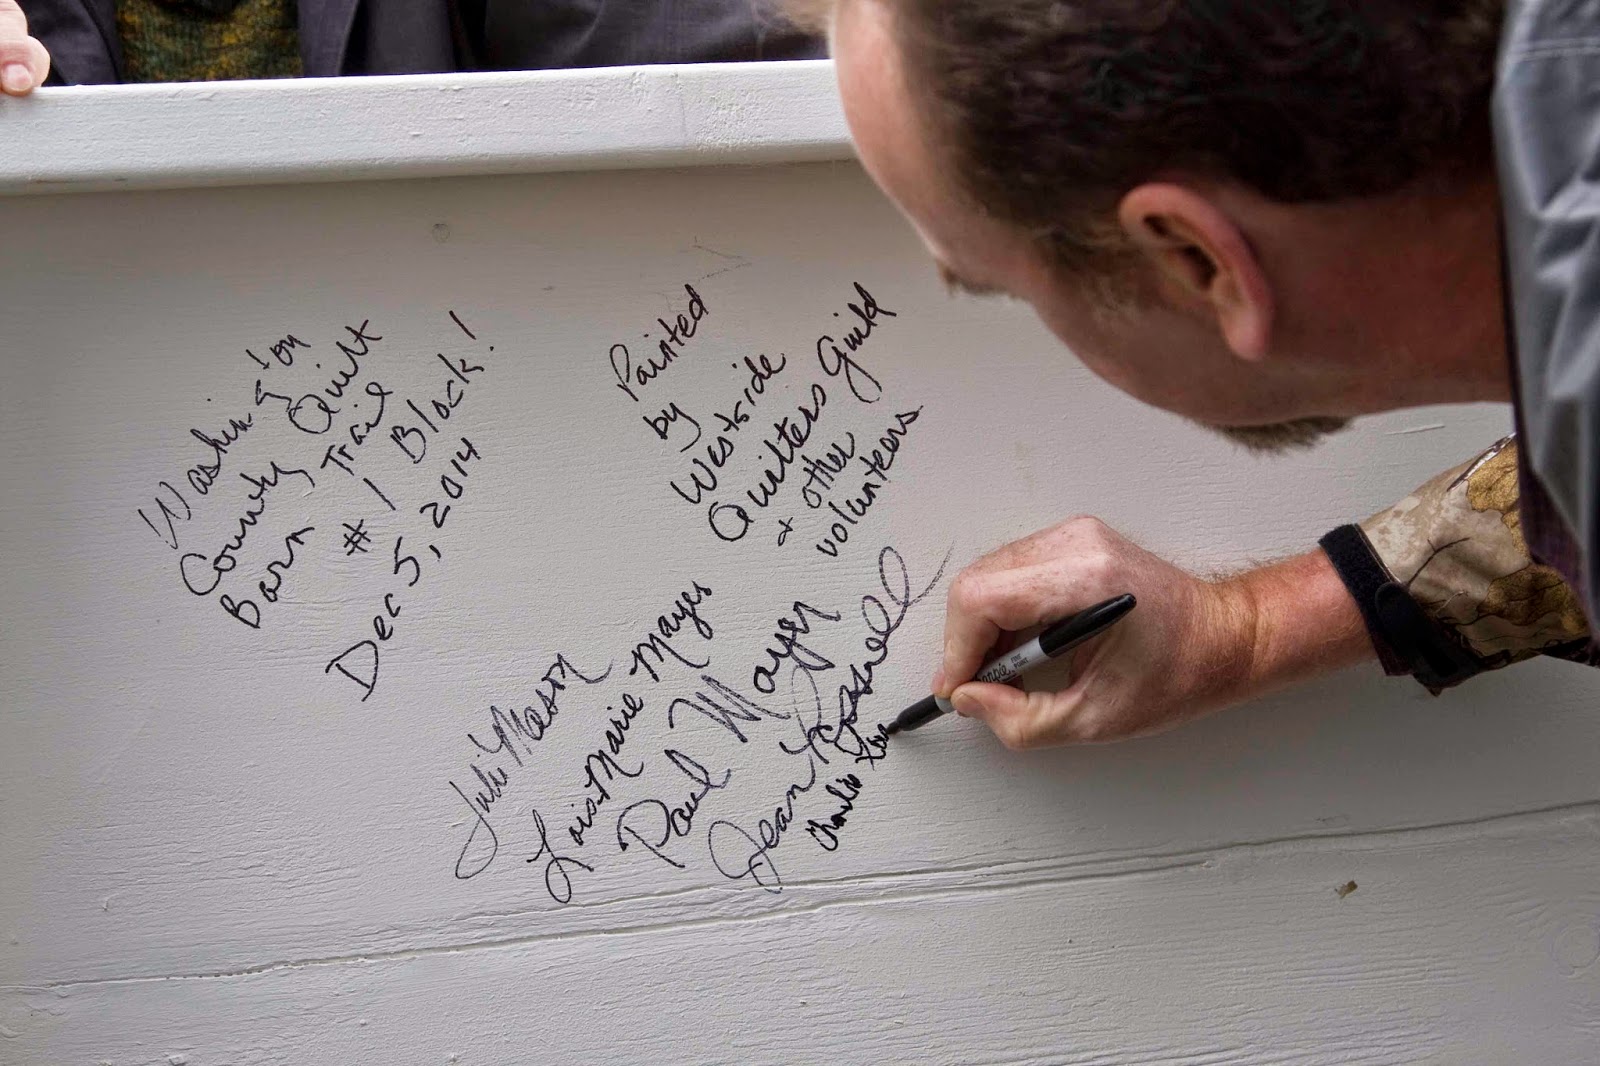 Washington
County Quilt
Barn Trail
# 1 Block!
Dec 5, 2014
Painted
by
Westside
Quilters Guild
& other
volunteers
Julie Mason
Lois Marie Mayes
Paul Mayer
Jean
Charlie